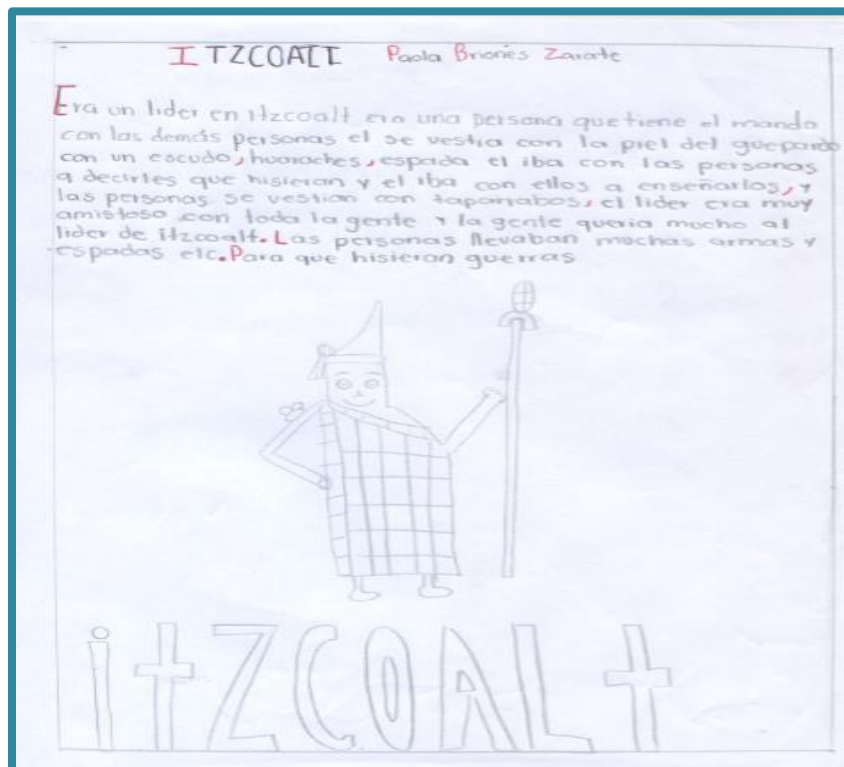 ITZCOALT Paola Briones Zarate
Era un lider en itzcoalt era una persona que tiene el mando
con las demás personas el se vestia con la piel del guepardo
con un escudo, huaraches, espada el iba con las personas
a decirles que hisieran y el iba con ellos a enseñarlos, y
las personas se vestian con taparrabos, el lider era muy
amistoso con toda la gente y la gente queria mucho al
lider de itzcoalt. Las personas llevaban muchas armas y
espadas etc. Para que hisieran guerras
itZCOALt